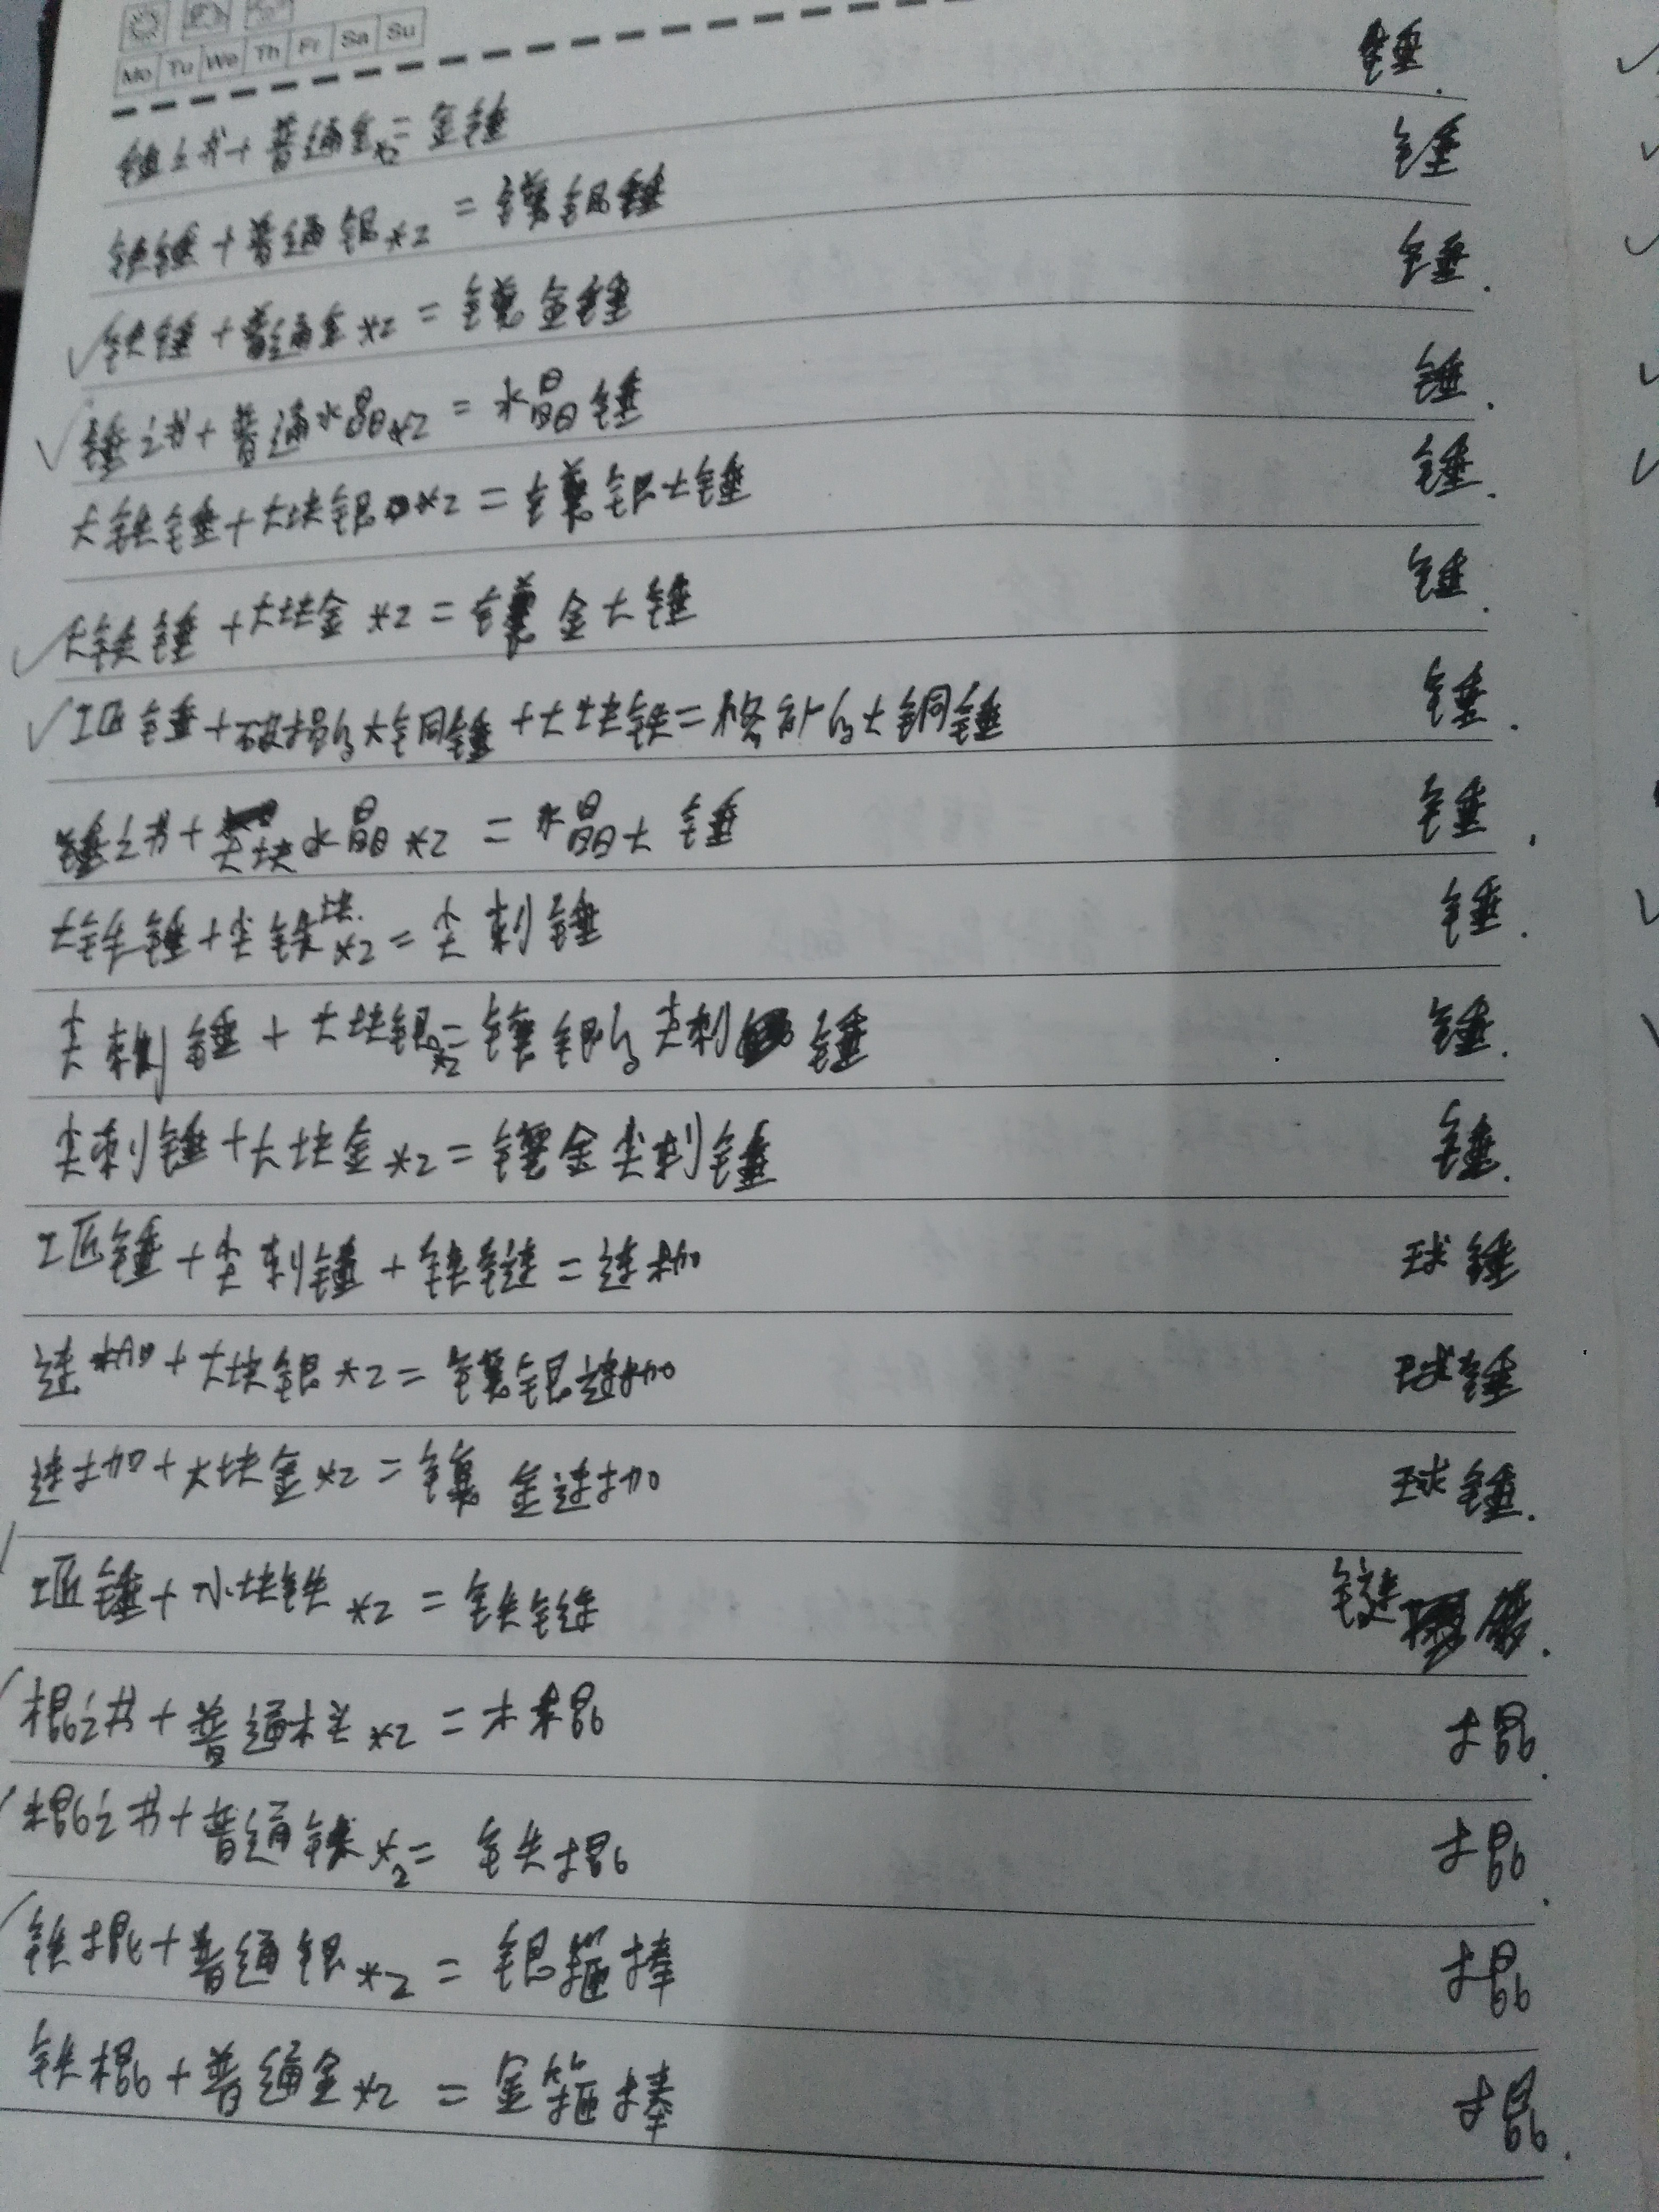 Mo Tu We Th Fr Sa Su
锤
锤之书+普通金*2=金锤 锤
铁锤+普通银*2=镶银锤 锤
铁锤+普通金*2=镶金锤 锤
锤之书+普通水晶*2=水晶锤 锤
大铁锤+大块银*2=镶银大锤 锤
大铁锤+大块金*2=镶金大锤 锤
工匠锤+破损的大铜锤+大块铁=修补的大铜锤 锤
锤之书+大块水晶*2=水晶大锤 锤
大铁锤+尖铁块*2=尖刺锤 锤
尖刺锤+大块银*2=镶银的尖刺锤 锤
尖刺锤+大块金*2=镶金尖刺锤 锤
工匠锤+尖刺锤+铁链=连枷 球锤
连枷+大块银*2=镶银连枷 球锤
连枷+大块金*2=镶金连枷 球锤
工匠锤+小块铁*2=铁链 链
棍之书+普通木头*2=木棍 棍
棍之书+普通铁*2=铁棍 棍
铁棍+普通银*2=银箍棒 棍
铁棍+普通金*2=金箍棒 棍